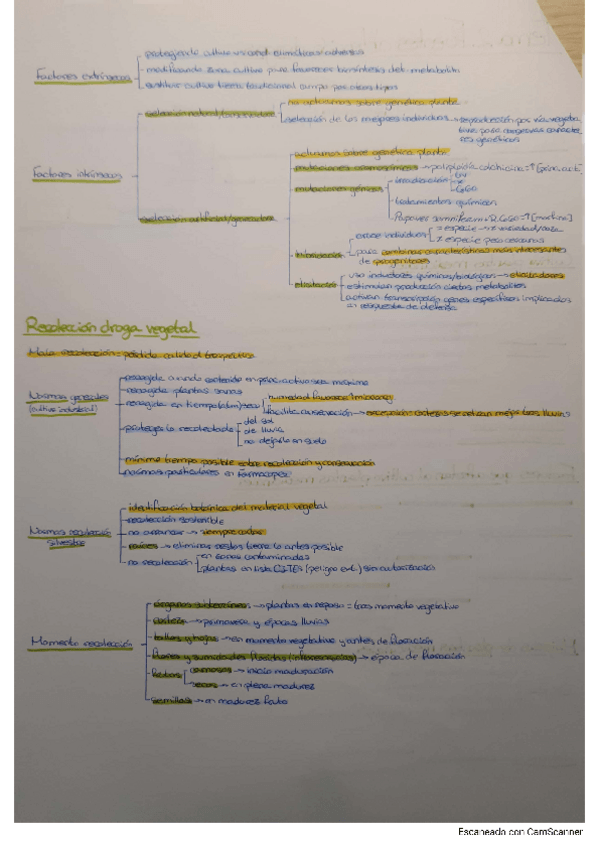 Factores extrínsecos
protegiendo cultivo vs cond. climáticas adversas
modificando zona cultivo para favorecer biosíntesis del metabolito
sustituir cultivo tierra tradicional campo por otros tipos
Factores intrínsecos
selección natural/conservadora
no actuamos sobre genética planta
selección de los mejores individuos → reproducción por vía vegeta
tiva para conservar caracte
res genéticos
selección artificial/generadora
actuamos sobre genética planta
mutaciones cromosómicas → poliploidía colchicina = ↑ [princ. act]
mutaciones génicas
irradiación
UV
Co60
tratamientos químicos
Papaver somniferum + R.Co60 = ↑ [morfina]
hibridación
cruce individuos
= especie → ≠ variedad/raza
≠ especie pero cercanas
para combinar características más interesantes
de progenitores
elicitación
uso inductores químicos/biológicos → elicitadores
estimulan producción ciertos metabolitos
activan transcripción genes específicos implicados
en respuesta de defensa
Recolección droga vegetal
Mala recolección: pérdida calidad terapéutica
Normas generales
(cultivo industrial)
recogida cuando contenido en princ. activo sea máximo
recogida plantas sanas
recogida en tiempo (atm) seco
humedad favorece microorg
facilita conservación → excepción: cortezas se retiran mejor tras lluvias
proteger lo recolectado
del sol
de lluvia
no dejarlo en suelo
mínimo tiempo posible entre recolección y conservación
normas particulares en farmacopea
Normas recolección
silvestres
identificación botánica del material vegetal
recolección sostenible
no arrancar → siempre cortar
raíces → eliminar restos tierra lo antes posible
no recolección
en zonas contaminadas
plantas en lista CITES (peligro ext.) sin autorización
Momento recolección
órganos subterráneos → plantas en reposo = tras momento vegetativo
corteza → primavera y épocas lluvias
tallos y hojas → en momento vegetativo y antes de floración
flores y sumidades floridas (inflorescencias) → época de floración
frutos
carnosos → inicio maduración
secos → en plena madurez
semillas → en madurez fruto
Escaneado con CamScanner